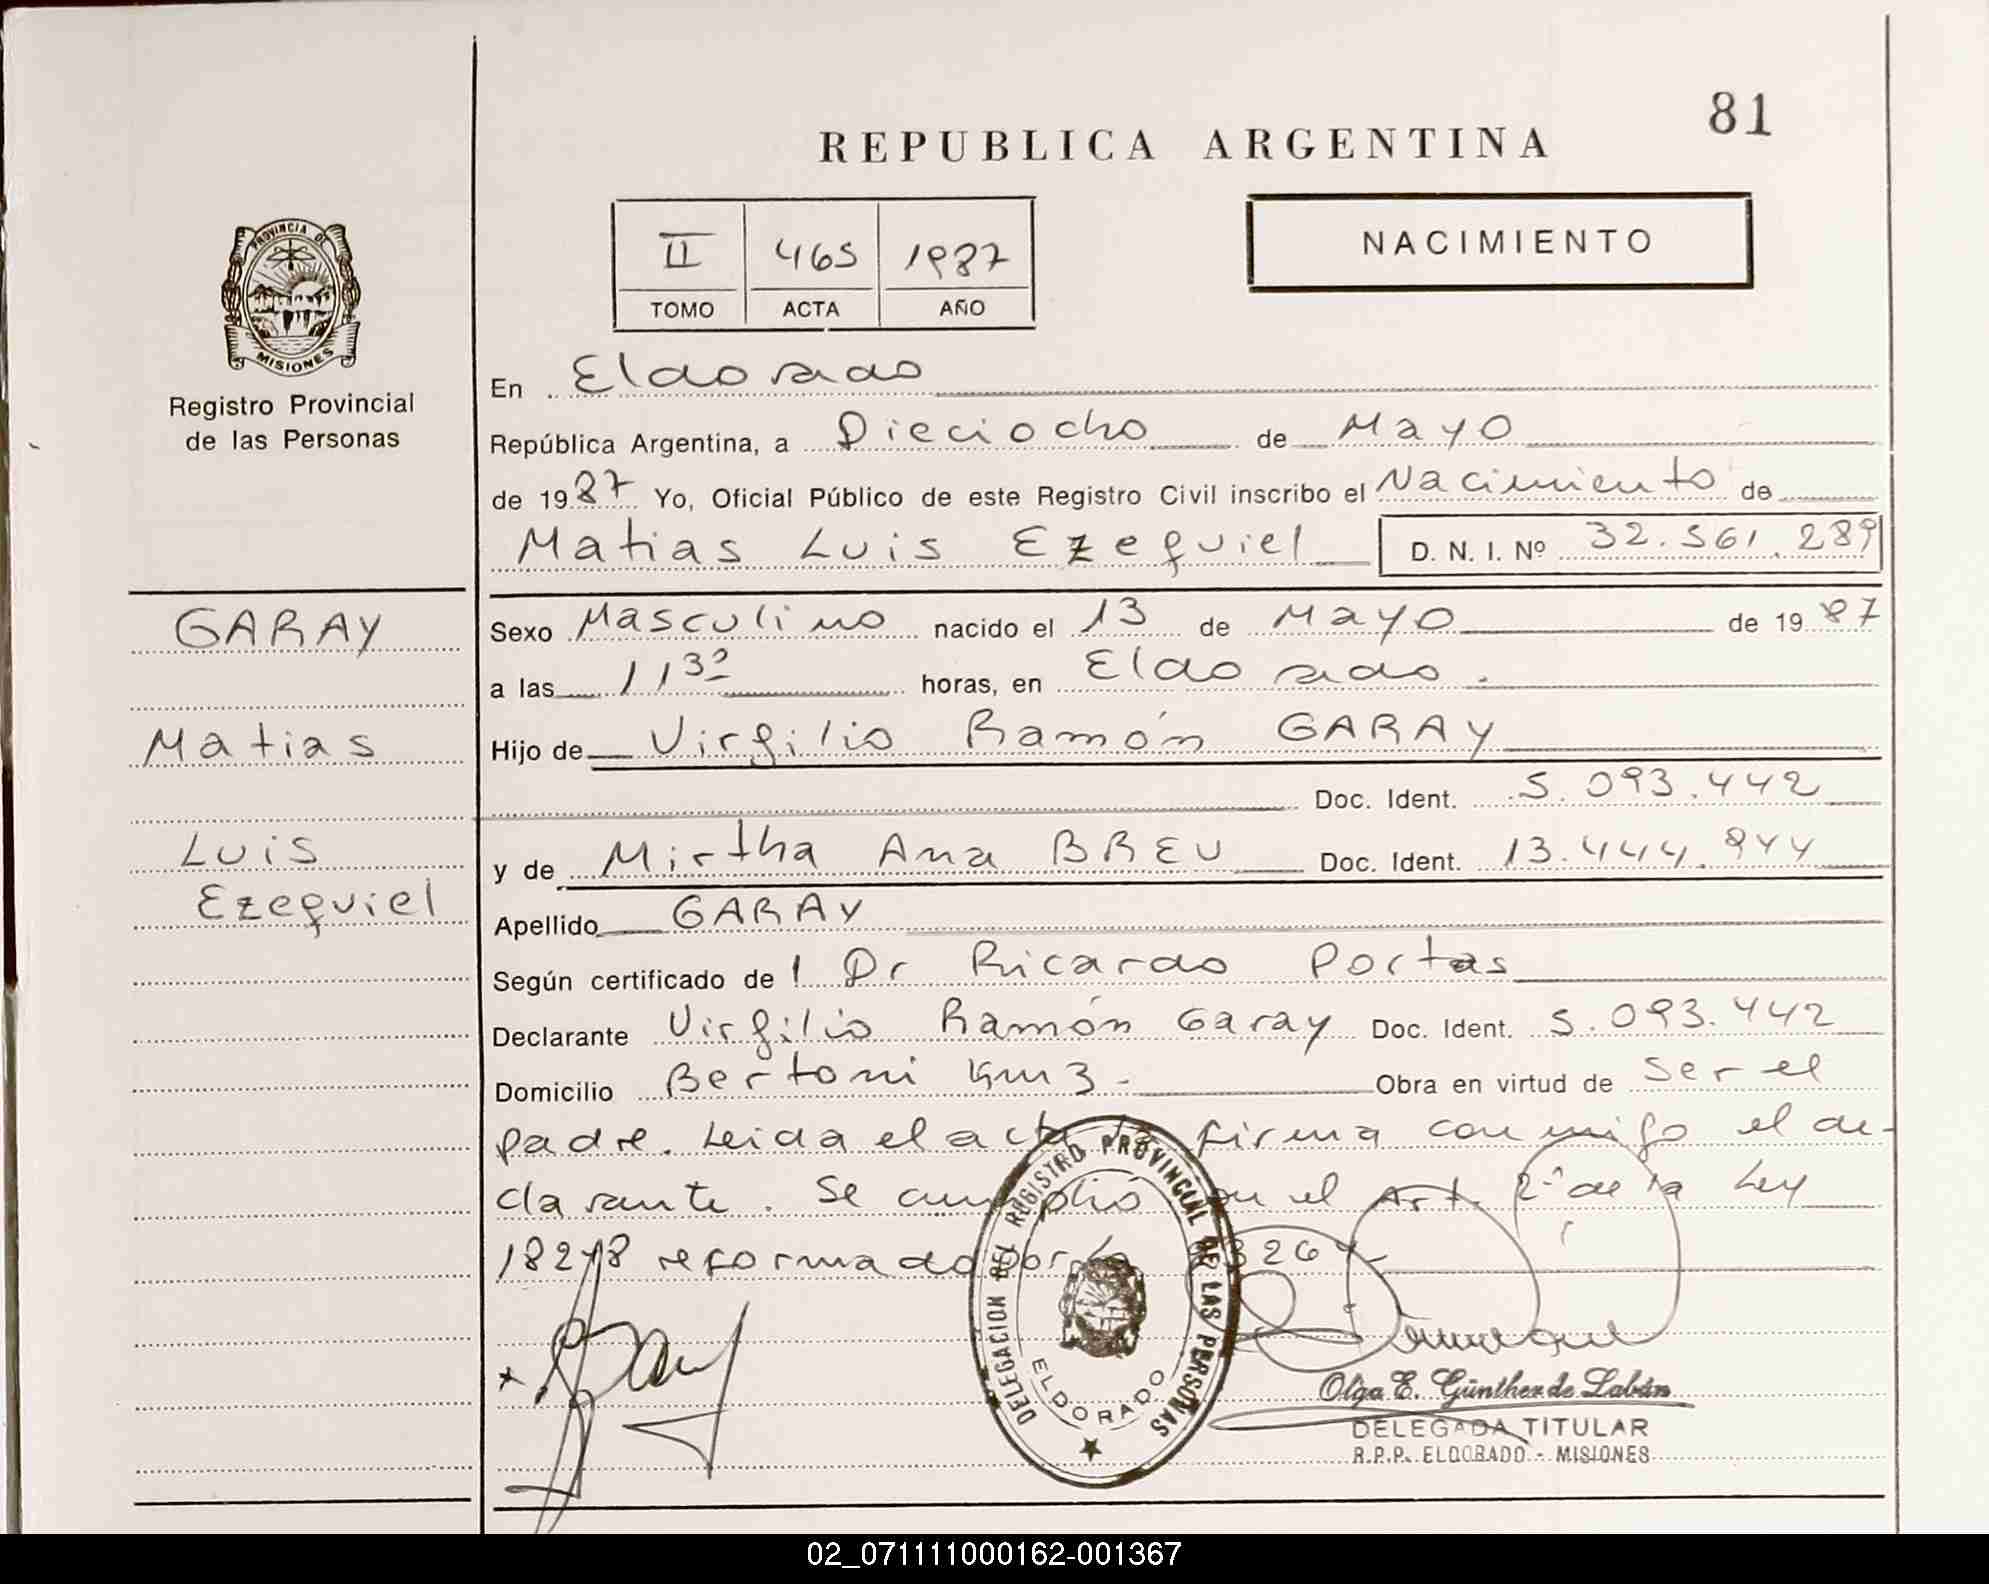 81
REPUBLICA ARGENTINA
II 465 1987
TOMO ACTA AÑO
NACIMIENTO
PROVINCIA DE
MISIONES
Registro Provincial
de las Personas
GARAY
Matias
Luis
Ezequiel
En Eldorado
República Argentina, a Dieciocho de Mayo
de 1987 Yo, Oficial Público de este Registro Civil inscribo el Nacimiento de
Matias Luis Ezequiel D. N. I. Nº 32.561.289
Sexo Masculino nacido el 13 de Mayo de 1987
a las 11 30 horas, en Eldorado.
Hijo de Virgilio Ramón GARAY
Doc. Ident. 5.093.442
y de Mirtha Ana BREU Doc. Ident. 13.444.944
Apellido GARAY
Según certificado de l Dr Ricardo Portas
Declarante Virgilio Ramón Garay Doc. Ident. 5.093.442
Domicilio Bertoni Km 3.- Obra en virtud de ser el
padre. Leida el acta la firma conmigo el de-
clarante. Se cumplió con el Art. 2º de la Ley
18248 reformado por
DELEGACION DEL REGISTRO PROVINCIAL DE LAS PERSONAS
ELDORADO
Olga E. Günther de Labán
DELEGADA TITULAR
R.P.P. ELDORADO - MISIONES
02_071111000162-001367